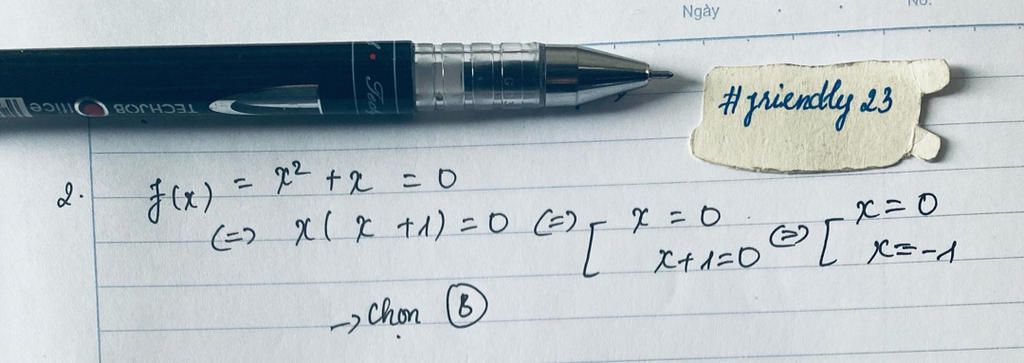 Ngày
No.
TECHJOB
#friendly 23
2. f(x) = x² + x = 0
(=) x( x +1) = 0 (=) [ x = 0 (=) [ x = 0
x+1=0 x=-1
-> chọn B